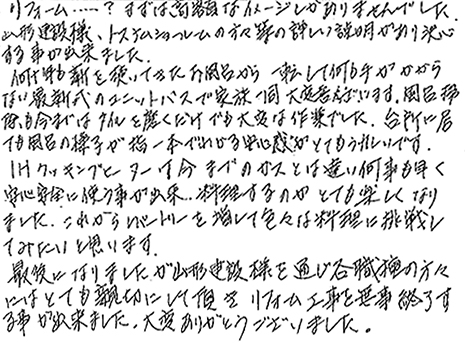 リフォーム……? まずは高額なイメージしかありませんでした。
山形建設様、トステムショールームの方々等の詳しい説明があり決心
する事が出来ました。
何十年も薪を使ってきたお風呂から一転して何も手がかから
ない最新式のユニットバスで家族一同大変喜んでいます。風呂掃
除も今まではタイルを磨くだけでも大変な作業でした。台所に居
ても風呂の様子が指一本でわかる安心感がとてもうれしいです。
IHクッキングヒーターで今までのガスとは違い何事も早く
安心安全に使う事が出来、料理するのがとても楽しくなり
ました。これからレパートリーを増して色々な料理に挑戦し
てみたいと思います。
最後になりましたが山形建設様を通じ各職種の方々
にはとても親切にして頂きリフォーム工事を無事終了す
る事が出来ました。大変ありがとうございました。